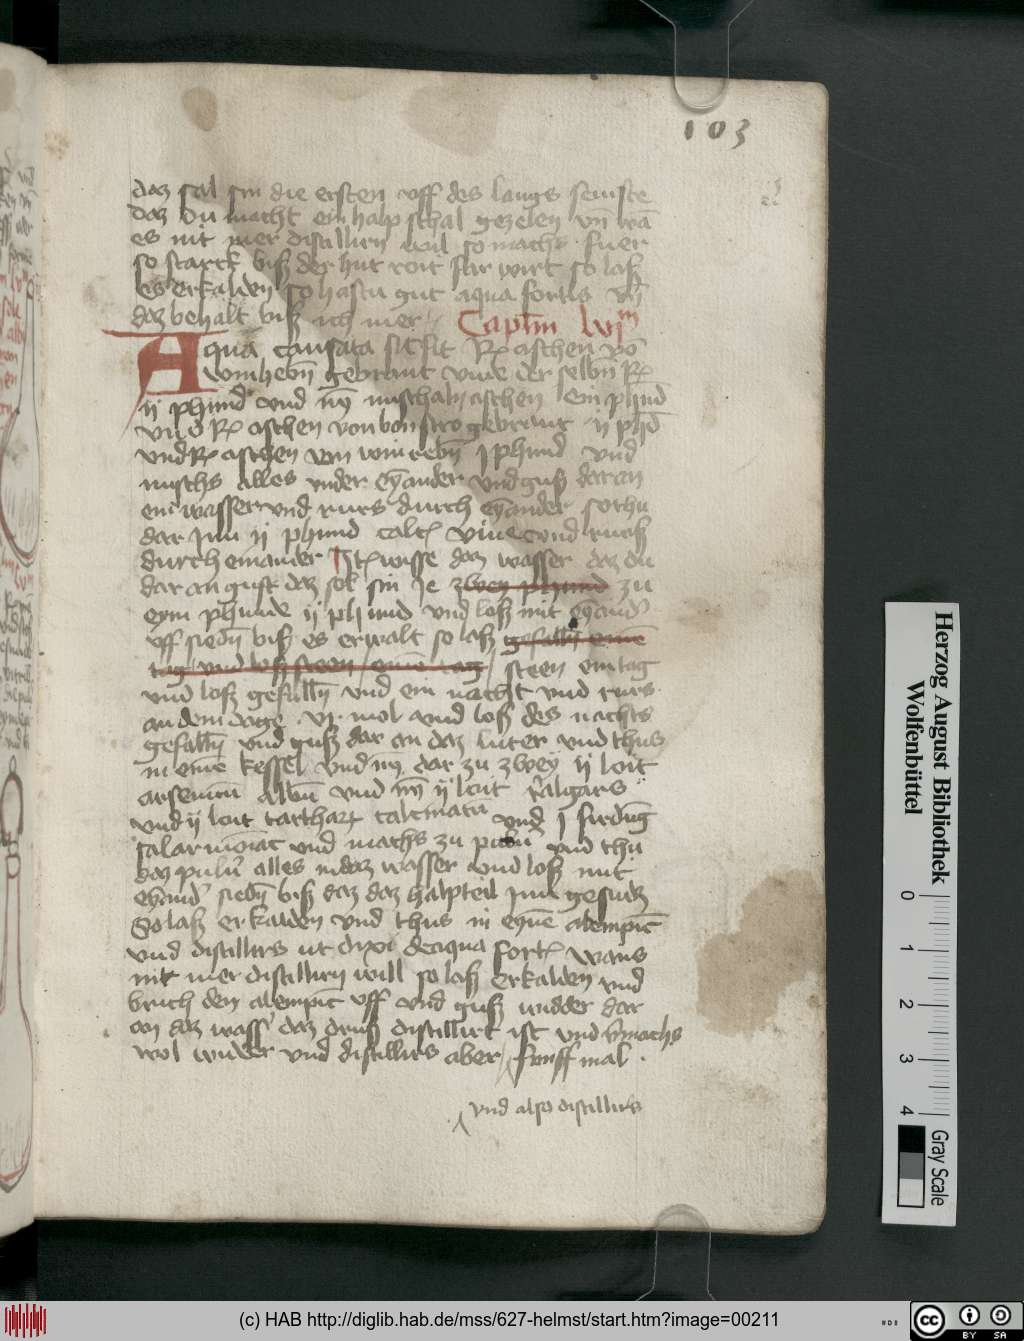 103
daz sal sin die ersten vff des langs senfste
daz du macht ein halp schal gezelen vn̄ wā
es nit mer distillirn wil so mach fuer
so starck biß der hut roit far wirt so laß
es erkalden so hastu gut aqua fortis vn̄
daz behalt biß ich mer
Captm̄ lvjm
Aqua causata sic fit Rx aschen vō
vonhebn̄ gebrant vnde der selbn̄ Rx
ij phund vnd nȳ muschaln aschen ein phund
vnd Rx aschen von bon stro gebrant ij phd̄
vnd Rx aschen von winrebn̄ j phund vnd
muschs alles vnder eynander vnd guß daran
ein wasser vnd rurs durch eynander so thu
dar Inn ij phund calc viue vnd rurß
durch einander Itē wisse daz wasser daz du
dar an gust daz sol sin Je zwey phund zu
eym phunde ij phund vnd loß mit eynand
vff siedn̄ biß es erwalt so laß gefalln̄ eine
tag vnd loß steen eine tag steen ein tag
vnd loß gefalln̄ vnd ein nacht vnd rurs
an dem dage vj mol vnd loß des nachts
gefalln̄ vnd guß dar an daz luter vnd thus
in eine kessel vnd nȳ dar zu zwey ij loit
arsenicū albū vnd nȳ ij loit realgars
vnd ij loit tarthari calcinati vnd j firdūg
salarmoniac vnd machs zu puluer vnd thu
daz puluer alles in daz wasser vnd loß mit
eynand siedn̄ biß daz daz halpteil Inn gesudz
So laß erkalden vnd thus in eyne alempic
vnd distillirs ut dixi de aqua fort wans
nit mer distillirn will so loß erkalden vnd
bruch den alempic vff vnd guß widder dar
an daz wasser daz druß distillirt ist vnd v̄machs
wol widder vnd distillirs aber funff mal
vnd also distillirs
Herzog August Bibliothek
Wolfenbüttel
0
1
2
3
4
Gray Scale
(c) HAB http://diglib.hab.de/mss/627-helmst/start.htm?image=00211
cc
BY SA